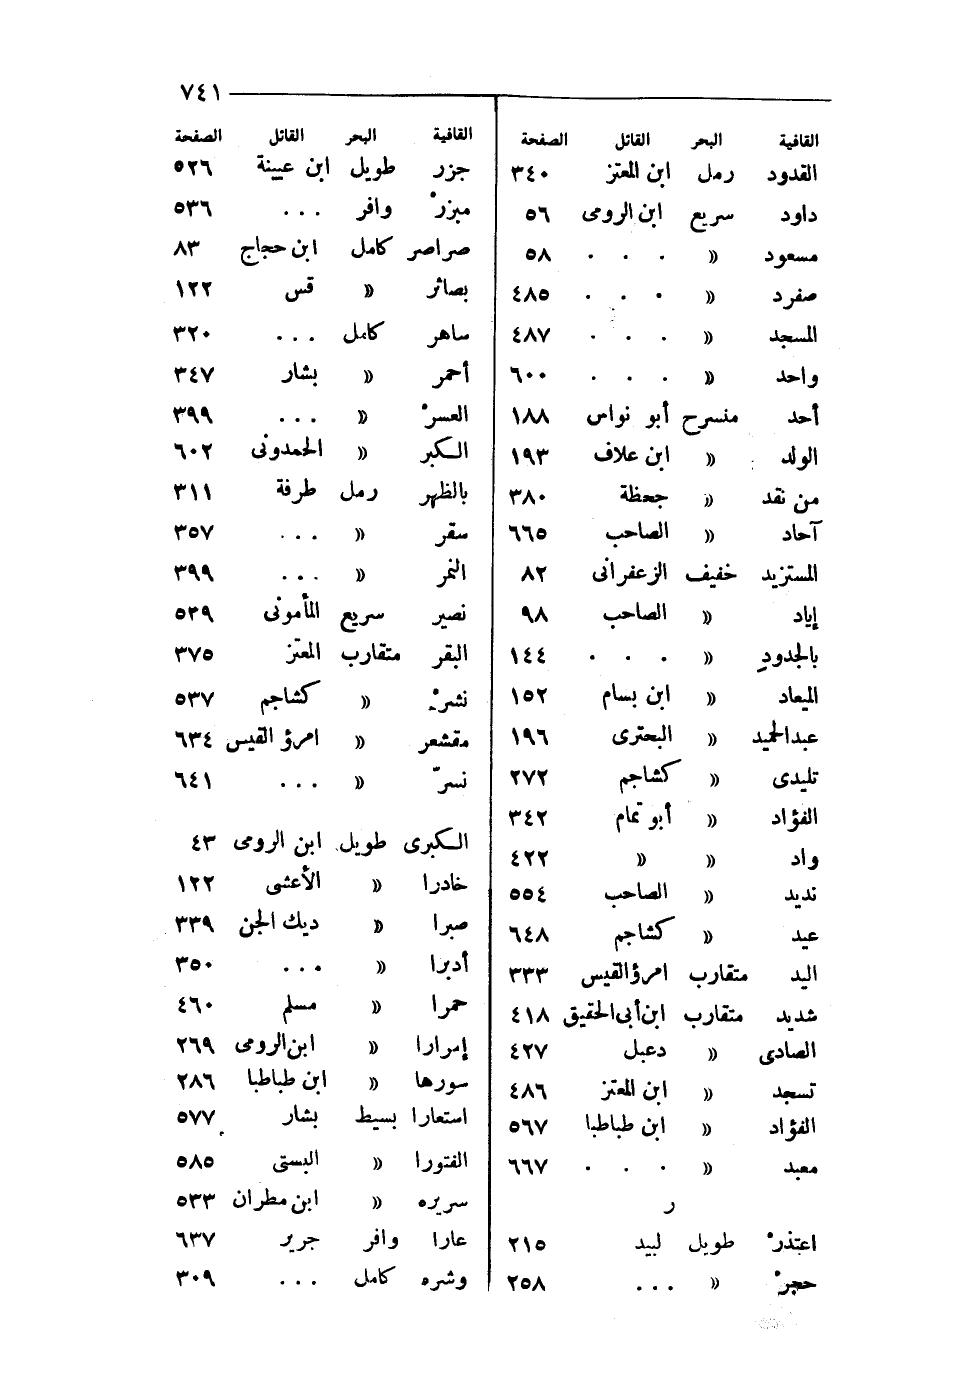 ٧٤١
القافية البحر القائل الصفحة
القدود رمل ابن المعتز ٣٤٠
داود سريع ابن الرومى ٥٦
مسعود « . . . ٥٨
صفرد « . . . ٤٨٥
المسجد « . . . ٤٨٧
واحد « . . . ٦٠٠
أحد منسرح أبو نواس ١٨٨
الولد « ابن علاف ١٩٣
من نقد « جحظة ٣٨٠
آحاد « الصاحب ٦٦٥
المستزيد خفيف الزعفرانى ٨٢
إياد « الصاحب ٩٨
بالجدود « . . . ١٤٤
الميعاد « ابن بسام ١٥٢
عبدالحميد « البحترى ١٩٦
تليدى « كشاجم ٢٧٢
الفؤاد « أبو تمام ٣٤٢
واد « « ٤٢٢
نديد « الصاحب ٥٥٤
عيد « كشاجم ٦٤٨
اليد متقارب امرؤ القيس ٣٣٣
شديد متقارب ابن أبى الحقيق ٤١٨
الصادى « دعبل ٤٢٧
تسجد « ابن المعتز ٤٨٦
الفؤاد « ابن طباطبا ٥٦٧
معبد « . . . ٦٦٧
ر
اعتذرْ طويل لبيد ٢١٥
حجرْ « . . . ٢٥٨
القافية البحر القائل الصفحة
جزر طويل ابن عيينة ٥٢٦
مبزرْ وافر . . . ٥٣٦
صراصر كامل ابن حجاج ٨٣
بصائر « قس ١٢٢
ساهر كامل . . . ٣٢٠
أحمر « بشار ٣٤٧
العسرْ « . . . ٣٩٩
الكبر « الحمدونى ٦٠٢
بالظهر رمل طرفة ٣١١
سقر « . . . ٣٥٧
النمر « . . . ٣٩٩
نصير سريع المأمونى ٥٣٩
البقر متقارب المعتز ٣٧٥
نشرْ « كشاجم ٥٣٧
مقشعر « امرؤ القيس ٦٣٤
نسرّ « . . . ٦٤١
الكبرى طويل ابن الرومى ٤٣
خادرا « الأعشى ١٢٢
صبرا « ديك الجن ٣٣٩
أدبرا « . . . ٣٥٠
حمرا « مسلم ٤٦٠
إمرارا « ابن الرومى ٢٦٩
سورها « ابن طباطبا ٢٨٦
استعارا بسيط بشار ٥٧٧
الفتورا « البستى ٥٨٥
سريره « ابن مطران ٥٣٣
عارا وافر جرير ٦٣٧
وشره كامل . . . ٣٠٩